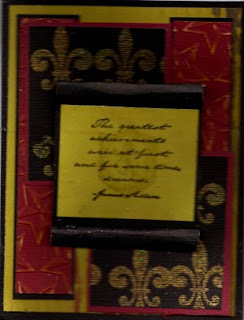 The greatest
achievements
were at first
and for some time
dreams.